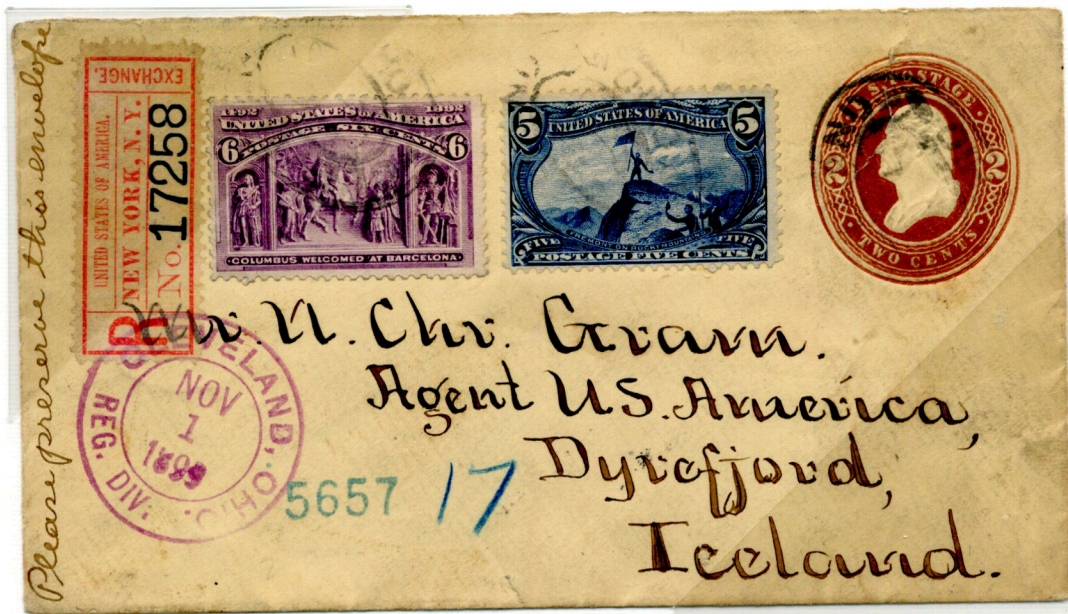 Please preserve this envelope
EXCHANGE.
UNITED STATES OF AMERICA.
NEW YORK, N. Y.
No. 17258
R
1492 1892
UNITED STATES OF AMERICA
POSTAGE SIX CENTS
6 6
COLUMBUS WELCOMED AT BARCELONA
5 UNITED STATES OF AMERICA 5
FREMONT ON ROCKY MOUNTAINS
FIVE FIVE
POSTAGE FIVE CENTS
U.S. POSTAGE
2 2
TWO CENTS
N. Chr. Gram.
Agent U.S. America,
Dyrefjord,
Iceland.
CLEVELAND, OHIO.
NOV
1
1899
REG. DIV.
5657
17